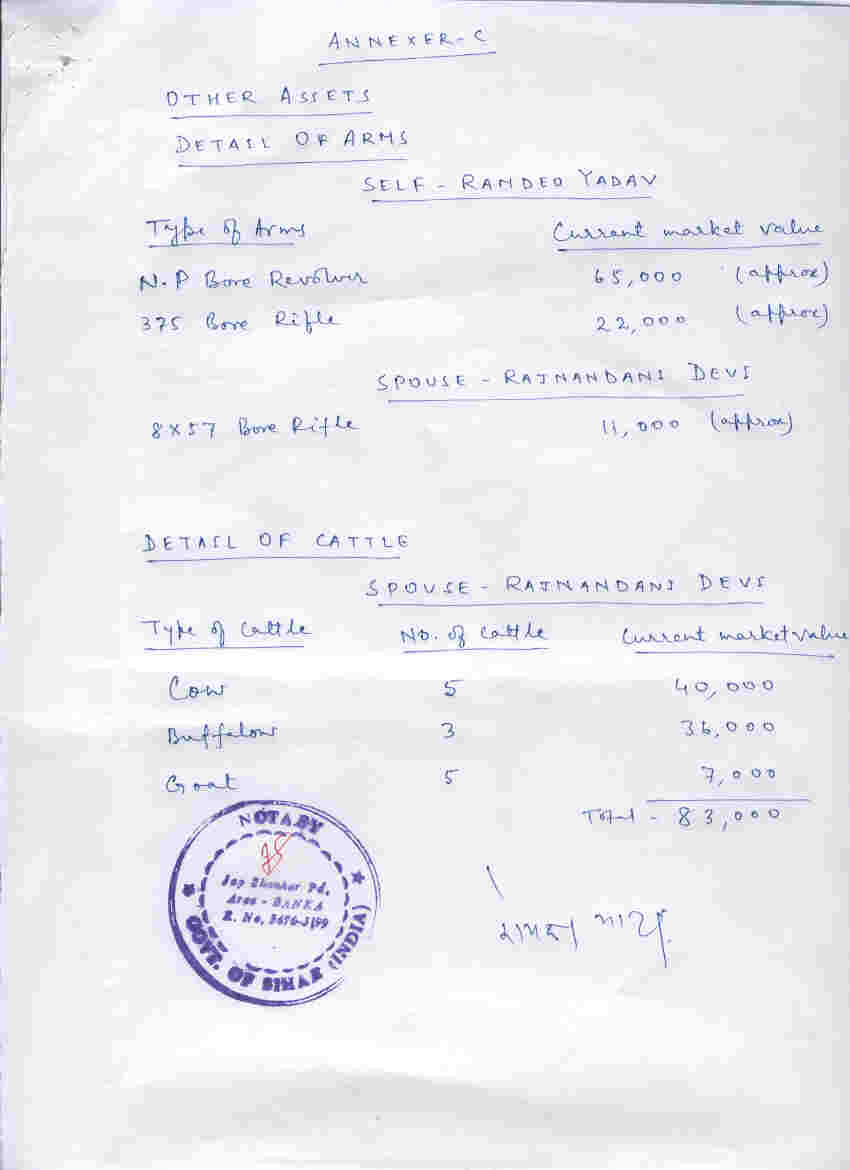 ANNEXER-C
OTHER ASSETS
DETAIL OF ARMS
SELF - RAMDEO YADAV
Type of Arms Current market value
N.P Bore Revolver 65,000 (approx)
375 Bore Rifle 22,000 (approx)
SPOUSE - RAJNANDANI DEVI
8x57 Bore Rifle 11,000 (approx)
DETAIL OF CATTLE
SPOUSE - RAJNANDANI DEVI
Type of Cattle No. of Cattle Current market value
Cow 5 40,000
Buffelow 3 36,000
Goat 5 7,000
Total - 83,000
NOTARY
Pd.
Area - BANKA
GOVT. OF BIHAR (INDIA)